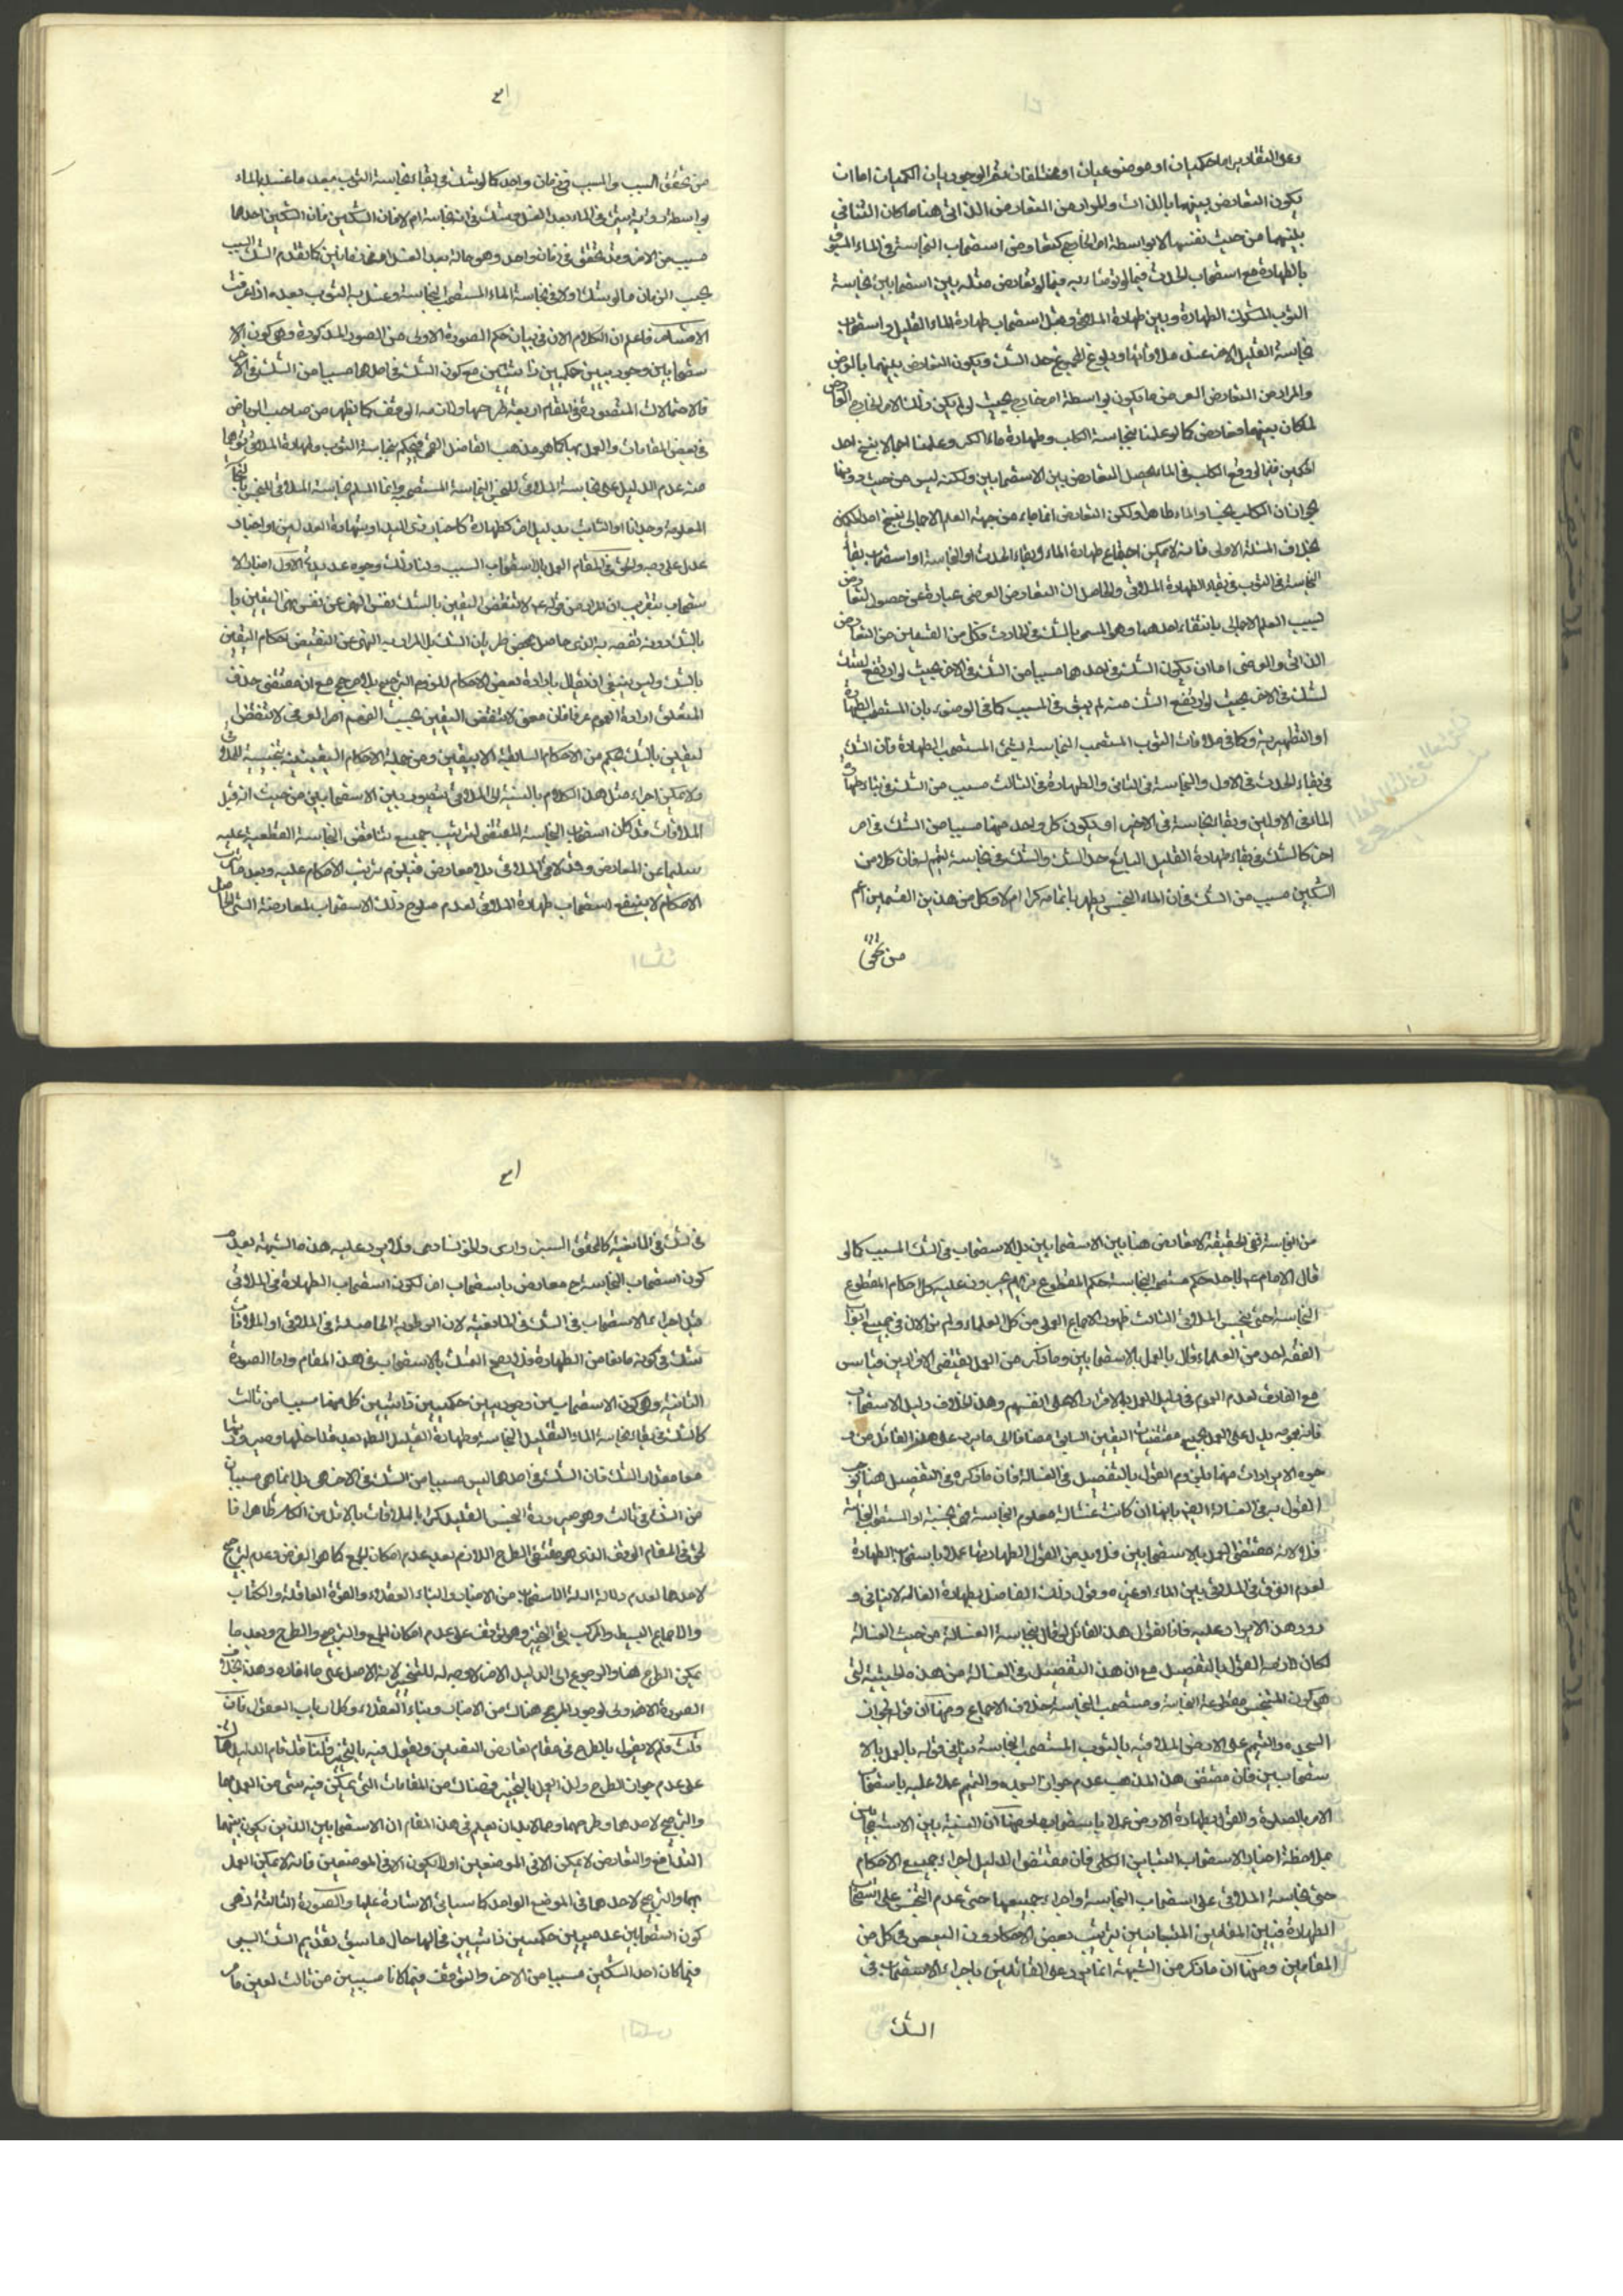 وعلى التقادير اما حكميان او موضوعيان او مختلفان ثم الوجوديان الحكميان اما ان
يكون التعارض بينهما بالذات والمراد من التعارض الذاتى هنا ما كان التنافى
بينهما من حيث نفسهما لا بواسطة امر خارج كتعارض استصحاب النجاسة فى الماء المسبوق
بالطهارة مع استصحاب الحدث فيما لو توضأ به فيما لو تعارض مثله بين استصحابين نجاسة
الثوب المشكوك الطهارة وبين طهارة الملاقى ومثل استصحاب طهارة الماء القليل واستصحاب
نجاسة القليل الاخر عند ملاقاتها وبلوغ المجموع حد الشك ويكون التعارض بينهما بالعرض
والمراد من التعارض العرضى ما يكون بواسطة امر خارج بحيث لو لم يكن ذلك الامر الخارج
لما كان بينهما تعارض كما لو علمنا بنجاسة الكلب وطهارة ماء الكر وعلمنا اجمالا بنسخ احد
الحكمين ففيما لو وقع الكلب فى الماء يحصل التعارض بين الاستصحابين ولكنه ليس من حيث
ان الكلب نجسا والماء طاهرا ولكن التعارض انما جاء من جهة العلم الاجمالى بنسخ احد الحكمين
بخلاف المسئلة الاولى فانه لا يمكن اجتماع طهارة الماء وبقاء الحدث او النجاسة او استصحاب بقاء
النجاسة فى الثوب فى بقاء الطهارة الملاقى والحاصل ان التعارض العرضى عبارة عن حصول التعارض
بسبب العلم الاجمالى بانتفاء احدهما وهو المسمى بالشك فى الحادث وكل من القسمين من التعارض
الذاتى والعرضى اما ان يكون الشك فى احدهما مسببا من الشك فى الاخر بحيث لو ارتفع الشك
لشك فى الاخر بحيث لو ارتفع الشك منه لم يبق فى المسبب كما فى الوضوء بان المستصحب الطهارة
او التطهير به وكما فى ملاقات الثوب المستصحب النجاسة لشئ المستصحب الطهارة فان الشك
فى بقاء الحدث فى الاول والنجاسة فى الثانى والطهارة فى الثالث مسبب من الشك فى بقاء طهارة
الماء فى الاولين وبقاء النجاسة فى الاخير او يكون كل واحد منهما مسببا من الشك فى امر
اخر كالشك فى بقاء طهارة القليل البالغ حد الشك والشك فى نجاسة المتمم له فان كلا من
الشكين مسبب من الشك فى ان الماء النجس يطهر باتمامه كرا ام لا وكل من هذين القسمين اعم
من تحقق
من تحقق السبب والمسبب فى زمان واحد كما لو شك فى بقاء نجاسة الثوب بعد ما غسل بالماء
بواسطة رؤية شئ فى الماء بعد الغسل
مسبب من الاخر وقد تحقق فى زمان واحد وهو حالة بعد الغسل او فى زمانين كما تقدم الشك السبب
بحسب الزمان ما لو شك اولا فى نجاسة الماء المستصحب النجاسة وغسل به الثوب بعده اذا عرفت
الاقسام فاعلم ان الكلام الان فى بيان حكم الصورة الاولى من الصور المذكورة وهو كون الا
ستصحابين وجوديين حكميين ذاتيين مع كون الشك فى احدهما مسببا من الشك فى الاخر
فالاحتمالات المتصورة فى المقام اربعة طرحهما والتوقف كما يظهر من صاحب الرياض
فى بعض المقامات والعمل بهما كما هو مذهب الفاضل القمى فيحكم بنجاسة الثوب وطهارة الملاقى
منه عدم الدليل على نجاسة الملاقى للنجس النجاسة المستصحبة وانما المسلم نجاسة الملاقى للنجس
المعلومة وجدانا او الثابت بدليل اخر كطهارة كاخبار ذى اليد او شهادة العدلين او اخبار
عدل على وجه والحق فى المقام العمل بالاستصحاب السبب ولنا ذلك وجوه عديدة الاول اخبار الا
ستصحاب بتقريب ان المراد من قوله ع لا تنقض اليقين بالشك نفس النهى عن نقض اليقين
بالشك دون نقضه به الذى حاصل بمحض طريان الشك بل المراد به النهى عن النقيض احكام اليقين
بالشك وليس ينبغى ان يقال بارادة بعض الاحكام للزوم الترجيح بلا مرجح مع ان مقتضى حذف
المتعلق ارادة العموم عرفا فان معنى لا تنقض اليقين بحسب الفهم العرفى لا تنقض
اليقين بالشك بحكم من الاحكام السابقة الا بيقين ومن جملة الاحكام اليقينية نجسية الملاقى
ولا يمكن اجراء مثل هذا الكلام بالنسبة الى الملاقى استصحاب بين الاستصحابين من حيث انه قبل
الملاقات قد كان استصحاب النجاسة المقتضى لترتيب جميع مناقض النجاسة القطعية عليه
سليما عن المعارض وقد لاقى الملاقى بلا معارض فيلزم ترتيب الاحكام عليه وبعد ترتيب
الاحكام لا ينفع استصحاب طهارة الملاقى لعدم صلوح ذلك الاستصحاب لمعارضة الشئ الحاصل
من النجاسة ففى الحقيقة لا تعارض هنا بين الاستصحابين بل لا استصحاب فى الشك المسبب كما لو
قال الامام ع لاجل حكم مستصحب النجاسة حكم المقطوع
النجاسة حتى تنجس الملاقى الثالث ظهور الاجماع العملى من كل العلماء ولم نر الان فى جميع ابواب
الفقه احد من العلماء قال بالعمل بالاستصحابين وما ذكر من العمل بمقتضى الاولين قياس
مع الفارق لعدم العموم فى دليل العمل بالاقرار الا على انفسهم وهذا بخلاف دليل الاستصحاب
فانه بعمومه يدل على العمل بجميع مقتضيات اليقين السابق مضافا الى ما يرد على هذا القائل من و
جوه الايرادات منها يلزم القول بالتفصيل فى الغسالة فان ما ذكره فى التفصيل هنا
القول به فى الغسالة ايضا بانها ان كانت غسالة معلوم النجاسة فهى نجسة او المستصحب النجاسة
فلا لانه مقتضى العمل بالاستصحابين فلا بد من القول بطهارتها عملا باستصحاب الطهارة
لعدم الفرق فى الملاقى بين الماء او غيره وقول ذلك الفاضل بطهارة الغسالة لا ينافى و
رود هذا الايراد عليه فانا نقول هذا القائل لو قال بنجاسة الغسالة من حيث الغسالة
لكان لازمه القول بالتفصيل مع ان هذا التفصيل فى الغسالة من هذه الحيثية التى
هى كون المتنجس مقطوعة النجاسة ومستصحب النجاسة خلاف الاجماع ومنها ان قوله بجواز
السجدة والتيمم على الارض الملاقية بالثوب المستصحب النجاسة ينافى قوله بالعمل بالا
ستصحابين فان مقتضى هذا المذهب عدم جواز السجدة والتيمم عملا عليه باستصحاب
الامر بالصلوة والقول بطهارة الارض عملا باستصحابها ومنها ان النسبة بين الاستصحابين
بملاحظة اخبار الاستصحاب التباين الكلى فان مقتضى الدليل اجراء جميع الاحكام
حتى نجاسة الملاقى على استصحاب النجاسة واجراء جميعها حتى عدم التنجس على استصحاب
الطهارة فبين المقامين المتباينين ترتيب بعض الاحكام دون البعض فى كل من
المقامين ومنها ان ما ذكر من الشبهة انما يرد على القائلين باجراء الاستصحاب فى
الشك
فى الشك فى المانعية كالمحقق السبزوارى والخونسارى ولا يرد عليه هذه الشبهة بعد
كون استصحاب النجاسة ح معارض باستصحاب اخر لكون استصحاب الطهارة فى الملاقى
قبل اجراء الاستصحاب فى الشك فى المانعية لان الرطوبة الحاصلة فى الملاقى او الملاقات
شك فى كونه مانعا من الطهارة فلا يصح التمسك بالاستصحاب فى هذا المقام واما الصورة
الثانية وهى كون الاستصحابين وجوديين حكميين ذاتيين كل منهما مسببا من ثالث
كالشك فى بقاء نجاسة الماء القليل النجاسة وطهارة القليل الطاهر بعد تداخلهما وصيرورتهما
معا مقدار الشك فان الشك فى احدهما ليس مسببا من الشك فى الاخر بل انما هى مسببان
من الشك فى ثالث وهو صيرورة النجس القليل كرا بالملاقات بالاقل من الكر طاهرا فا
لحق فى المقام التوقف الذى هو مقتضى الطرح اللازم بعد عدم امكان الجمع كما هو الفرض وعدم الترجيح
لاحدهما لعدم دلالة ادلة الاستصحاب من الاخبار والبناء العقلاء والقوة العاقلة والكتاب
والاجماع البسيط والمركب بقى التخيير وهو توقف على عدم امكان الجمع والترجيح والطرح وبعد ما
يمكن الطرح هنا والرجوع الى الدليل الاخر لا وجه له للتخيير لانه الاصل على ما افاده وهذا بخلاف
الصورة الاولى لوجود المرجح هناك من الاخبار وبناء العقلاء وكل ارباب العقول فان
قلت فلم لا تقول بالطرح فى مقام تعارض اليقينين وتقول فيه بالتخيير قلنا قد قام الدليل هناك
على عدم جواز الطرح ولزوم العمل بالتخيير فهناك من المقامات التى يمكن فيه شئ من العمل بهما
والترجيح لاحدهما وطرحهما ومما لا بد ان يعلم فى هذا المقام ان الاستصحابين الذين يكون بينهما
التدافع والتعارض لا يمكن الا فى الموضعين او لا يكون الا فى الموضعين فانه لا يمكن العمل
بهما والترجيح لاحدهما فى الموضع الواحد كما سيأتى الاشارة عليها والصورة الثالثة وهى
كون الاستصحابين عدميين حكميين ذاتيين فحالهما حال ما سبق بتقديم الشك السببى
فيما كان احد الشكين مسببا من الاخر والتوقف فيما كانا مسببين من ثالث لعين ما مر